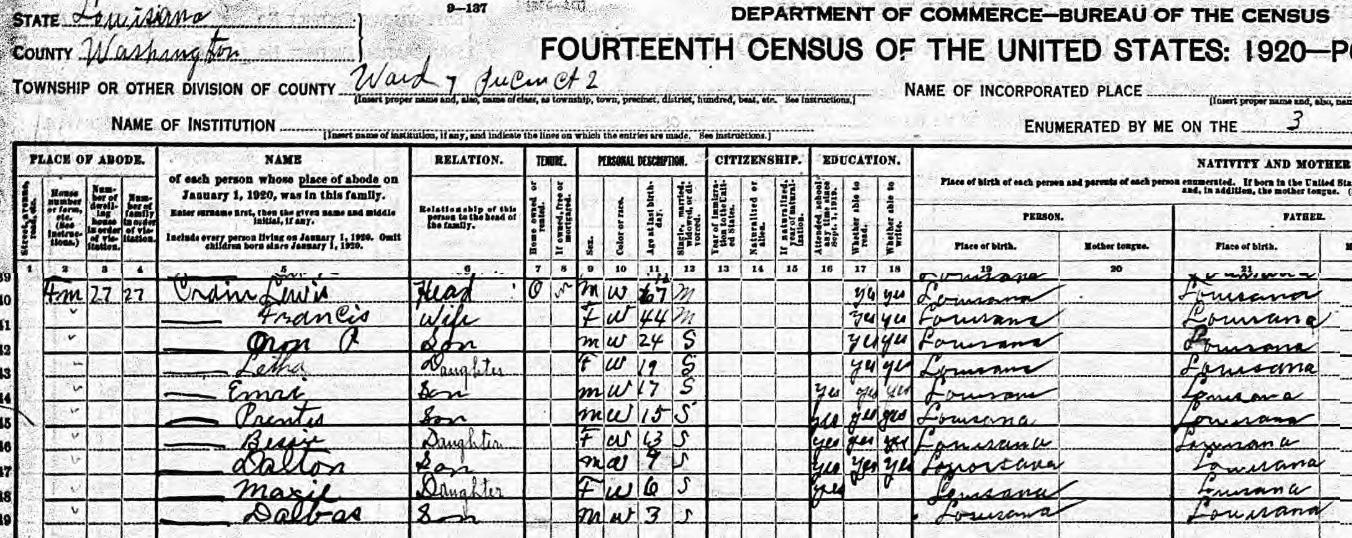 9—137
STATE Louisiana
DEPARTMENT OF COMMERCE—BUREAU OF THE CENSUS
COUNTY Washington
FOURTEENTH CENSUS OF THE UNITED STATES: 1920—PO
TOWNSHIP OR OTHER DIVISION OF COUNTY Ward 7 Precinct 2
NAME OF INCORPORATED PLACE
[Insert proper name and, also, name of class, as township, town, precinct, district, hundred, beat, etc. See instructions.]
[Insert proper name and, also, nam
NAME OF INSTITUTION
ENUMERATED BY ME ON THE 3
[Insert name of institution, if any, and indicate the lines on which the entries are made. See instructions.]
PLACE OF ABODE. NAME RELATION. TENURE. PERSONAL DESCRIPTION. CITIZENSHIP. EDUCATION. NATIVITY AND MOTHER
Street, avenue, road, etc.
House number or farm, etc. (See instructions.)
Number of dwelling house in order of visitation.
Number of family in order of visitation.
of each person whose place of abode on January 1, 1920, was in this family.
Enter surname first, then the given name and middle initial, if any.
Include every person living on January 1, 1920. Omit children born since January 1, 1920.
Relationship of this person to the head of the family.
Home owned or rented.
If owned, free or mortgaged.
Sex.
Color or race.
Age at last birthday.
Single, married, widowed, or divorced.
Year of immigration to the United States.
Naturalized or alien.
If naturalized, year of naturalization.
Attended school any time since Sept. 1, 1919.
Whether able to read.
Whether able to write.
Place of birth of each person and parents of each person enumerated. If born in the United Sta
and, in addition, the mother tongue. (
PERSON. FATHER.
Place of birth. Mother tongue. Place of birth. M
1 2 3 4 5 6 7 8 9 10 11 12 13 14 15 16 17 18 19 20 21
39 Louisiana Louisiana
40 Fm 27 27 Crain Lewis Head O M W 67 M yes yes Louisiana Louisiana
41 " Francis Wife F W 44 M yes yes Louisiana Louisiana
42 " Oron P Son M W 24 S yes yes Louisiana Louisiana
43 " Letha Daughter F W 19 S yes yes Louisiana Louisiana
44 " Son M W 17 S yes yes yes Louisiana Louisiana
45 " Prentis Son M W 15 S yes yes yes Louisiana Louisiana
46 " Bessie Daughter F W 13 S yes yes yes Louisiana Louisiana
47 " Dalton Son M W 9 S yes yes yes Louisiana Louisiana
48 " Mazie Daughter F W 6 S yes Louisiana Louisiana
49 " Dalbas Son M W 3 S Louisiana Louisiana